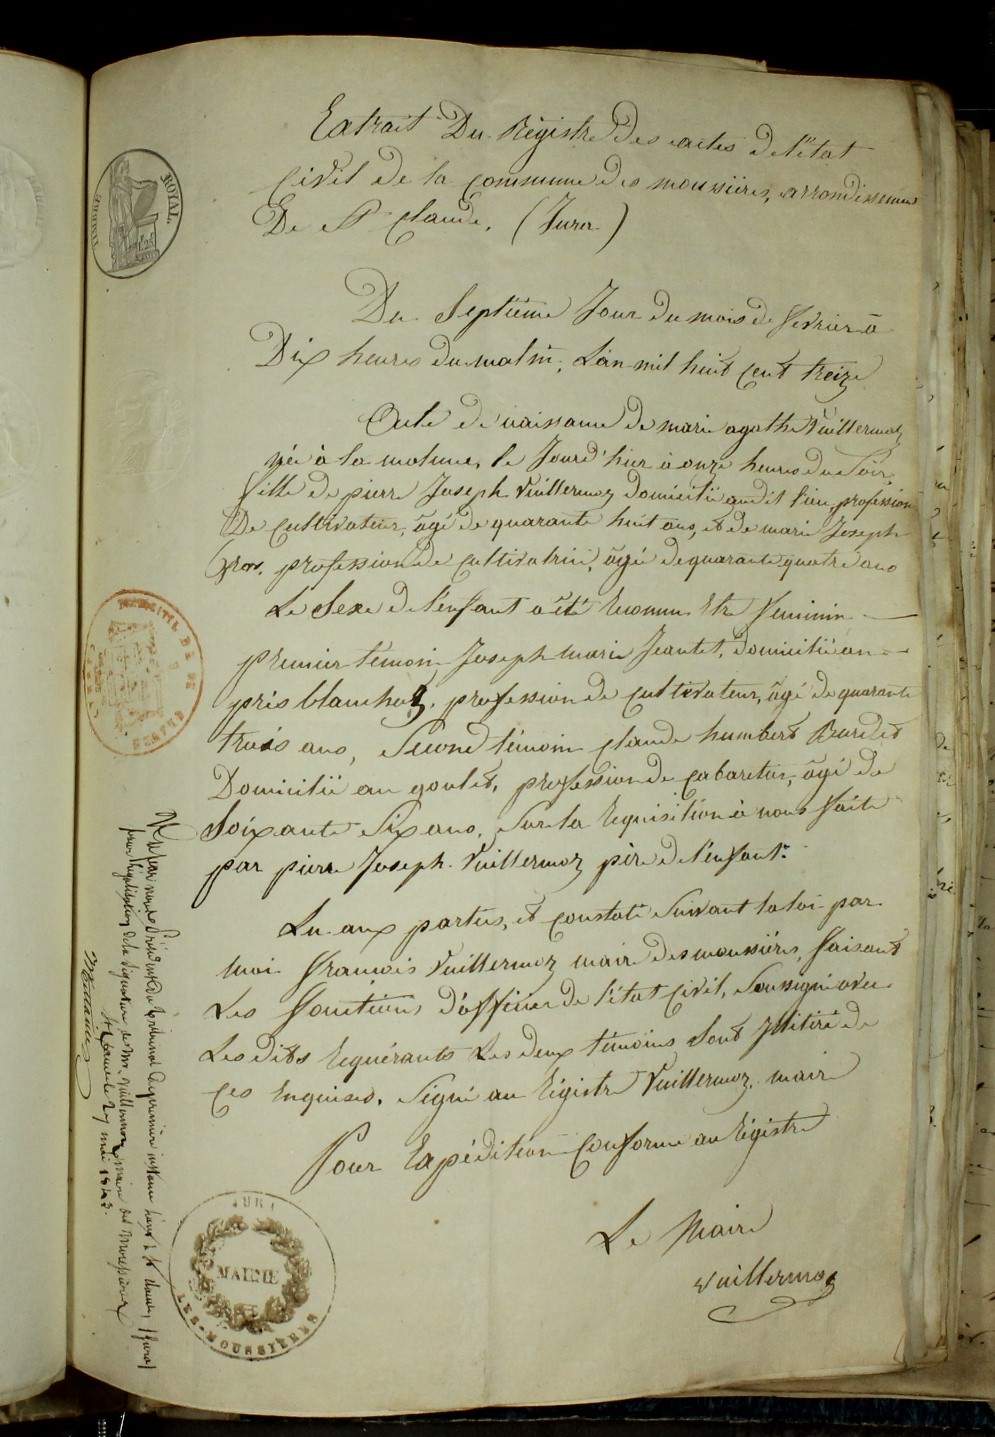 Extrait Du Régistre Des actes De l'état
Civil de la commune des moussières, arrondissement
De St Claude, (Jura)
Du Septième Jour du mois de fevrier à
Dix heures du matin, L'an mil huit cent treize
Acte de naissance de marie agathe Vuillermoz
née à la molune, le Jourd'hier à onze heures du Soir,
fille de pierre Joseph Vuillermoz domicilié audit lieu, profession
De Cultivateur, âgé de quarante huit ans, et de marie Joseph
Gros, profession de Cultivatrice, âgée de quarante quatre ans
Le Sexe De l'enfant a été reconnu Etre feminin
premier témoin Joseph marie Jeantet, domicilié au
prés blanchoz, profession de cultivateur, âgé de quarante
trois ans, Second témoin claude humbert Burdet
Domicilié au goulet, profession de cabaretier, âgé de
Soixante Six ans, Sur la requisition à nous faite
par pierre Joseph Vuillermoz père de l'enfant.
Lu aux parties, et constaté Suivant la loi par
moi françois Vuillermoz maire des moussières, faisant
Les fonctions d'officier de l'état civil, Soussigné avec
Les dits requérants Les deux témoins Sont
Ces Enquises. Signé au régistre Vuillermoz, maire
Pour Expédition conforme au régistre
Le Maire
Vuillermoz
TIMBRE ROYAL
JURA
MAIRIE
LES-MOUSSIÈRES
Vu par nous Président du tribunal de première instance séant à St Claude, (Jura)
pour légalisation de la signature de Mr. Vuillermoz maire des Moussières
St Claude le 27 mai 1843.